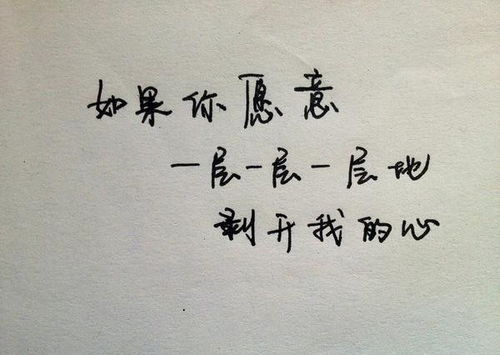 如果你愿意
一层一层一层地
剥开我的心